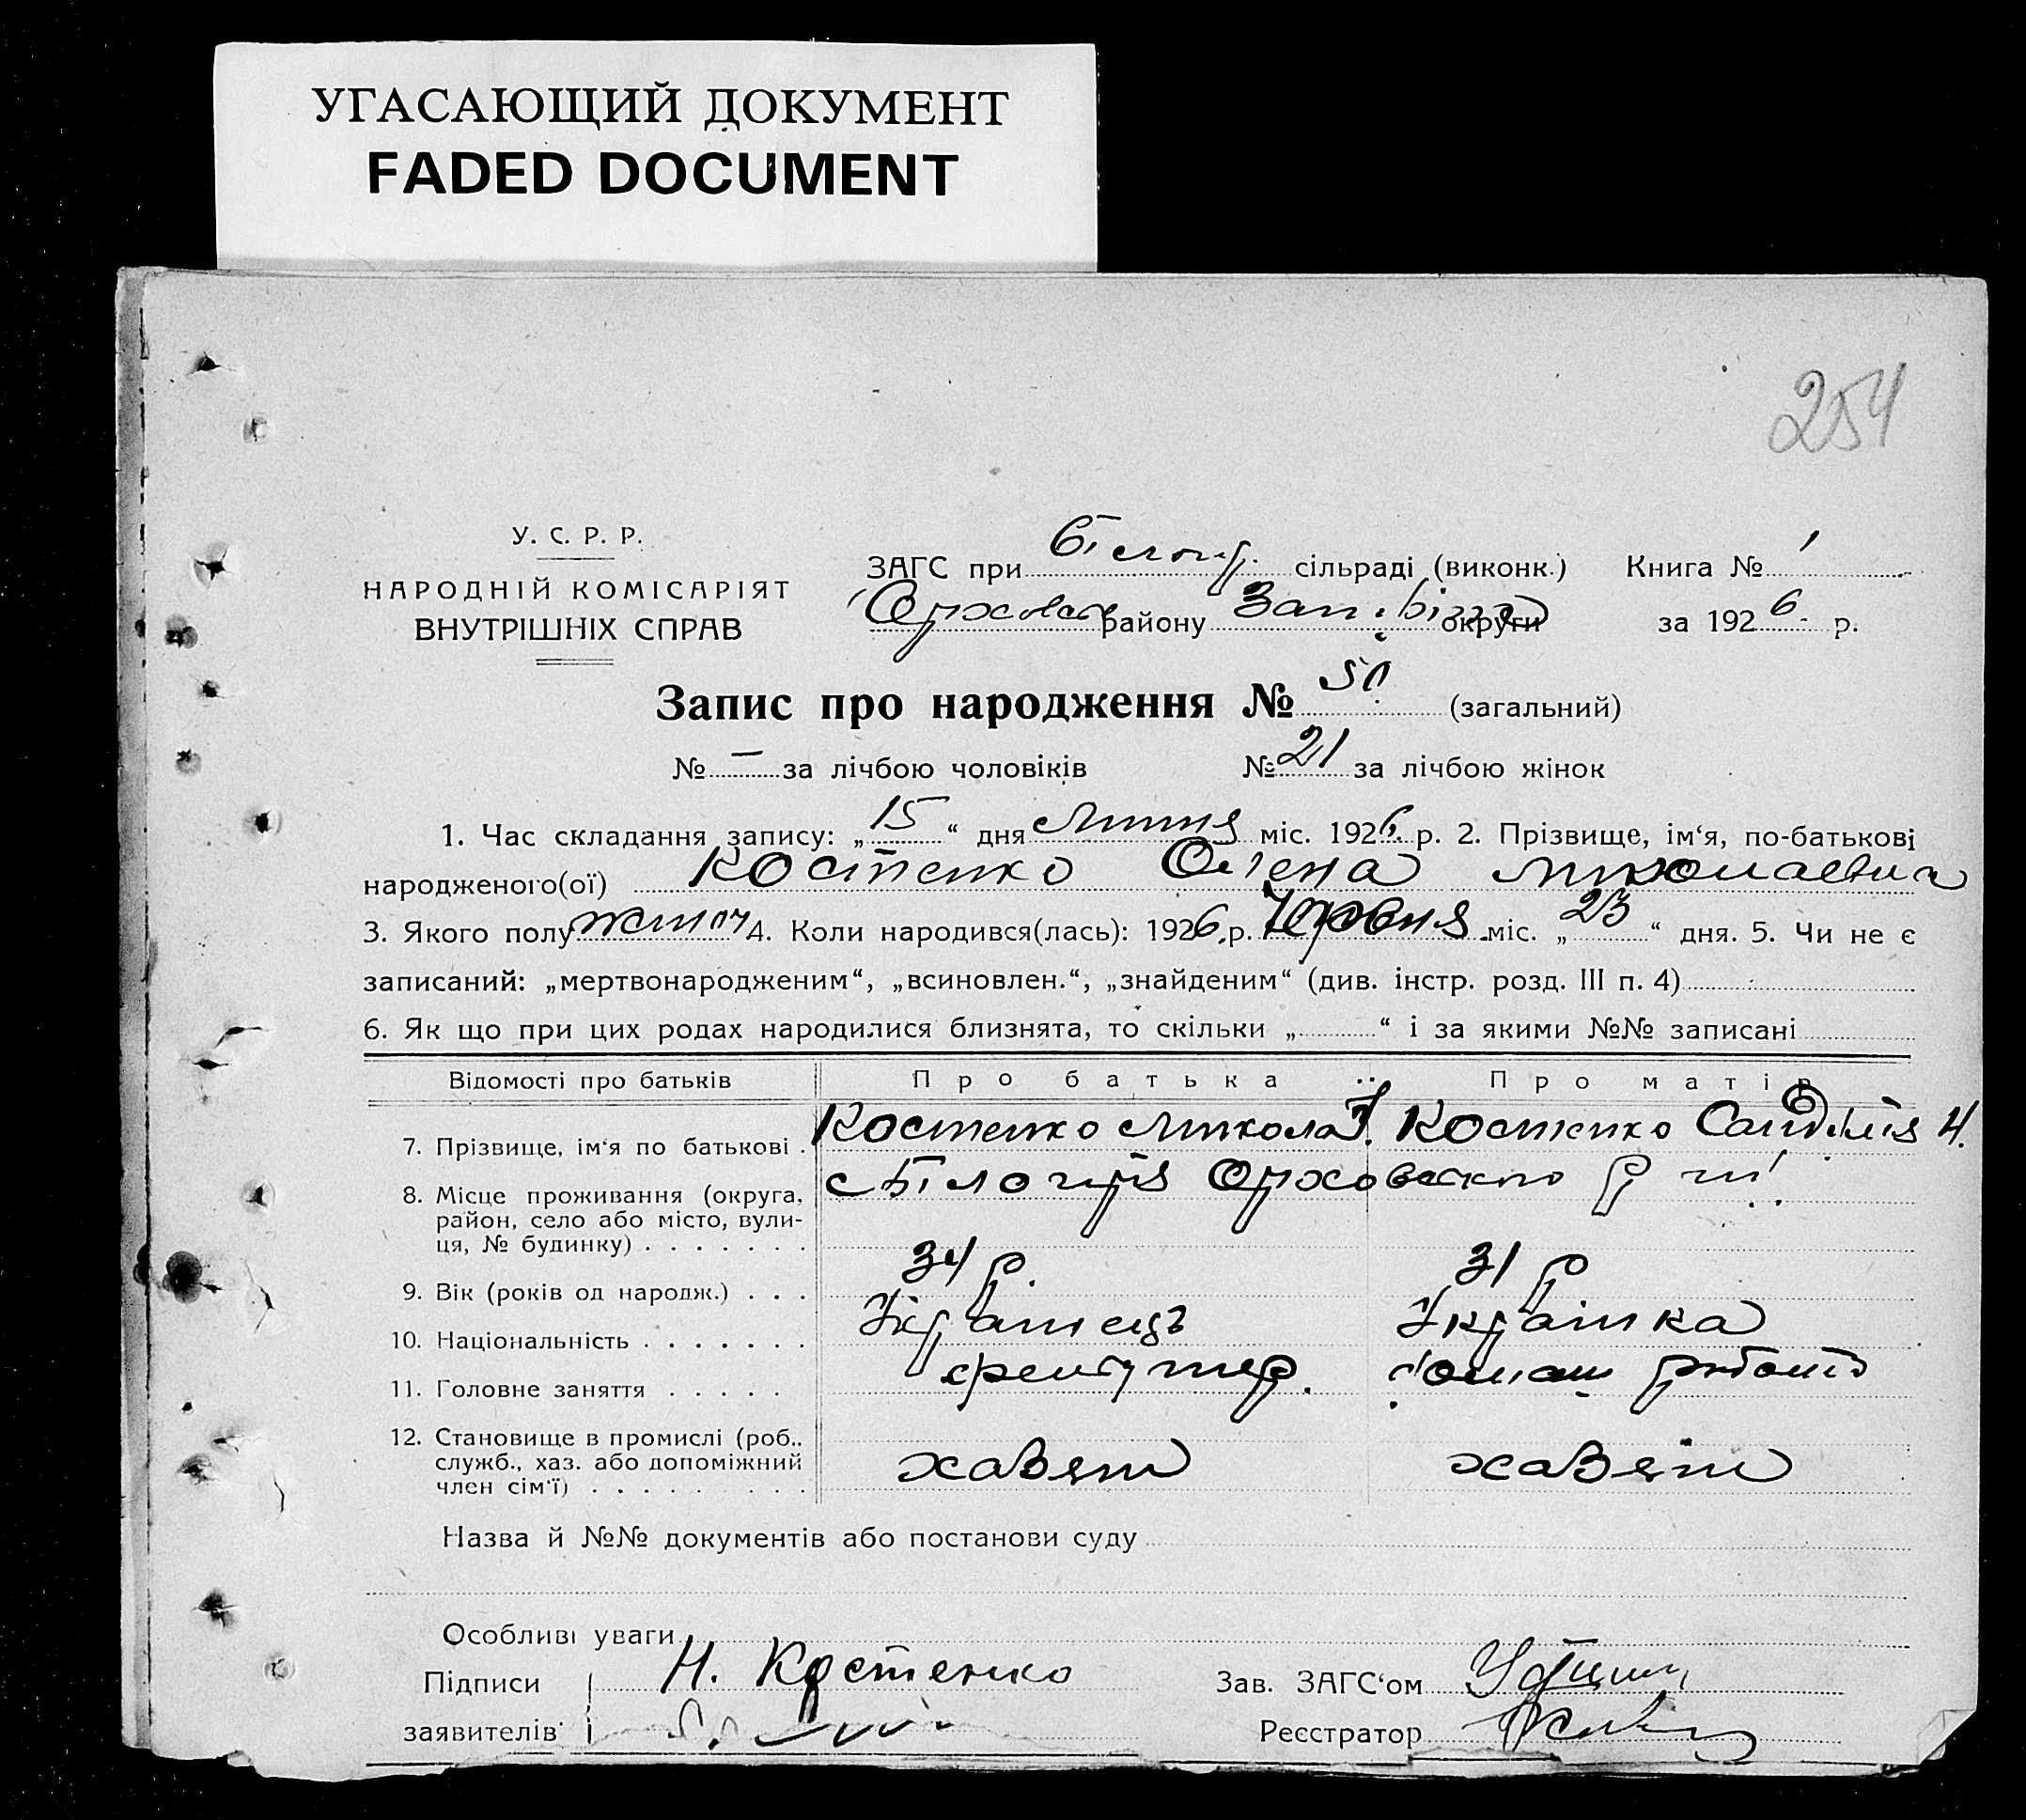 УГАСАЮЩИЙ ДОКУМЕНТ
FADED DOCUMENT
254
У. С. Р. Р.
НАРОДНІЙ КОМІСАРІЯТ
ВНУТРІШНІХ СПРАВ
ЗАГС при Білогір. сільраді (виконк.) Книга № 1
Оріховськ району Зап. округи за 1926 р.
Запис про народження № 50 (загальний)
№ — за лічбою чоловіків № 21 за лічбою жінок
1. Час складання запису: „15“ дня Липня міс. 1926 р. 2. Прізвище, ім‘я, по-батькові
народженого(ої) Костенко Олена Миколаевна
3. Якого полу жіноч 4. Коли народився(лась): 1926 р. Червня міс. „23“ дня. 5. Чи не є
записаний: „мертвонародженим“, „всиновлен.“, „знайденим“ (див. інстр. розд. III п. 4)
6. Як що при цих родах народилися близнята, то скільки „ “ і за якими №№ записані
Відомості про батьків Про батька Про матір
7. Прізвище, ім‘я по батькові . Костенко Микола Костенко
8. Місце проживання (округа, район, село або місто, вули-ця, № будинку) . . . . . . . с Білогірія Оріховського р
9. Вік (років од народж.) . . . 34 р. 31 р
10. Національність . . . . . . . Українець Українка
11. Головне заняття . . . . . фельдшер. робота
12. Становище в промислі (роб., служб., хаз. або допоміжний член сім‘ї) . . . . . . . . .
Назва й №№ документів або постанови суду
Особливі уваги
Підписи Н. Костенко Зав. ЗАГС‘ом
заявителів Реєстратор